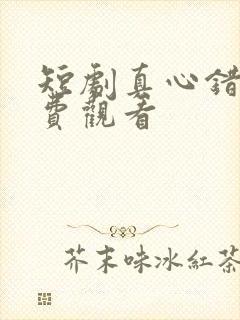 短劇真心錯
費觀看
芥末味冰紅茶